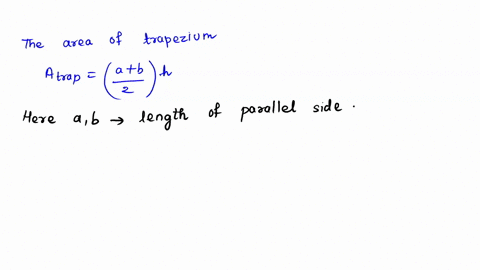 The area of trapezium
A trap = (a+b/2) h
Here a,b → length of parallel side .